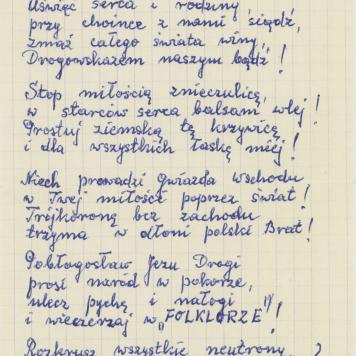 Uświęć serca i rodziny,
przy choince z nami siądź,
zmaż całego świata winy,
Drogowskazem naszym bądź!
Stop miłością znieczulicę,
w starców serca balsam wlej!
Prostuj ziemską tę krzywicę
i dla wszystkich łaskę miej!
Niech prowadzi Gwiazda Wschodu
w Twej miłości poprzez świat!
Trójkoronę bez zachodu
trzyma w dłoni polski Brat!
Pobłogosław Jezu Drogi
prosi naród w pokorze,
ulecz pychę i nałogi
i wieczerzaj w „FOLKLORZE"!
Rozkrusz wszystkie neutrony